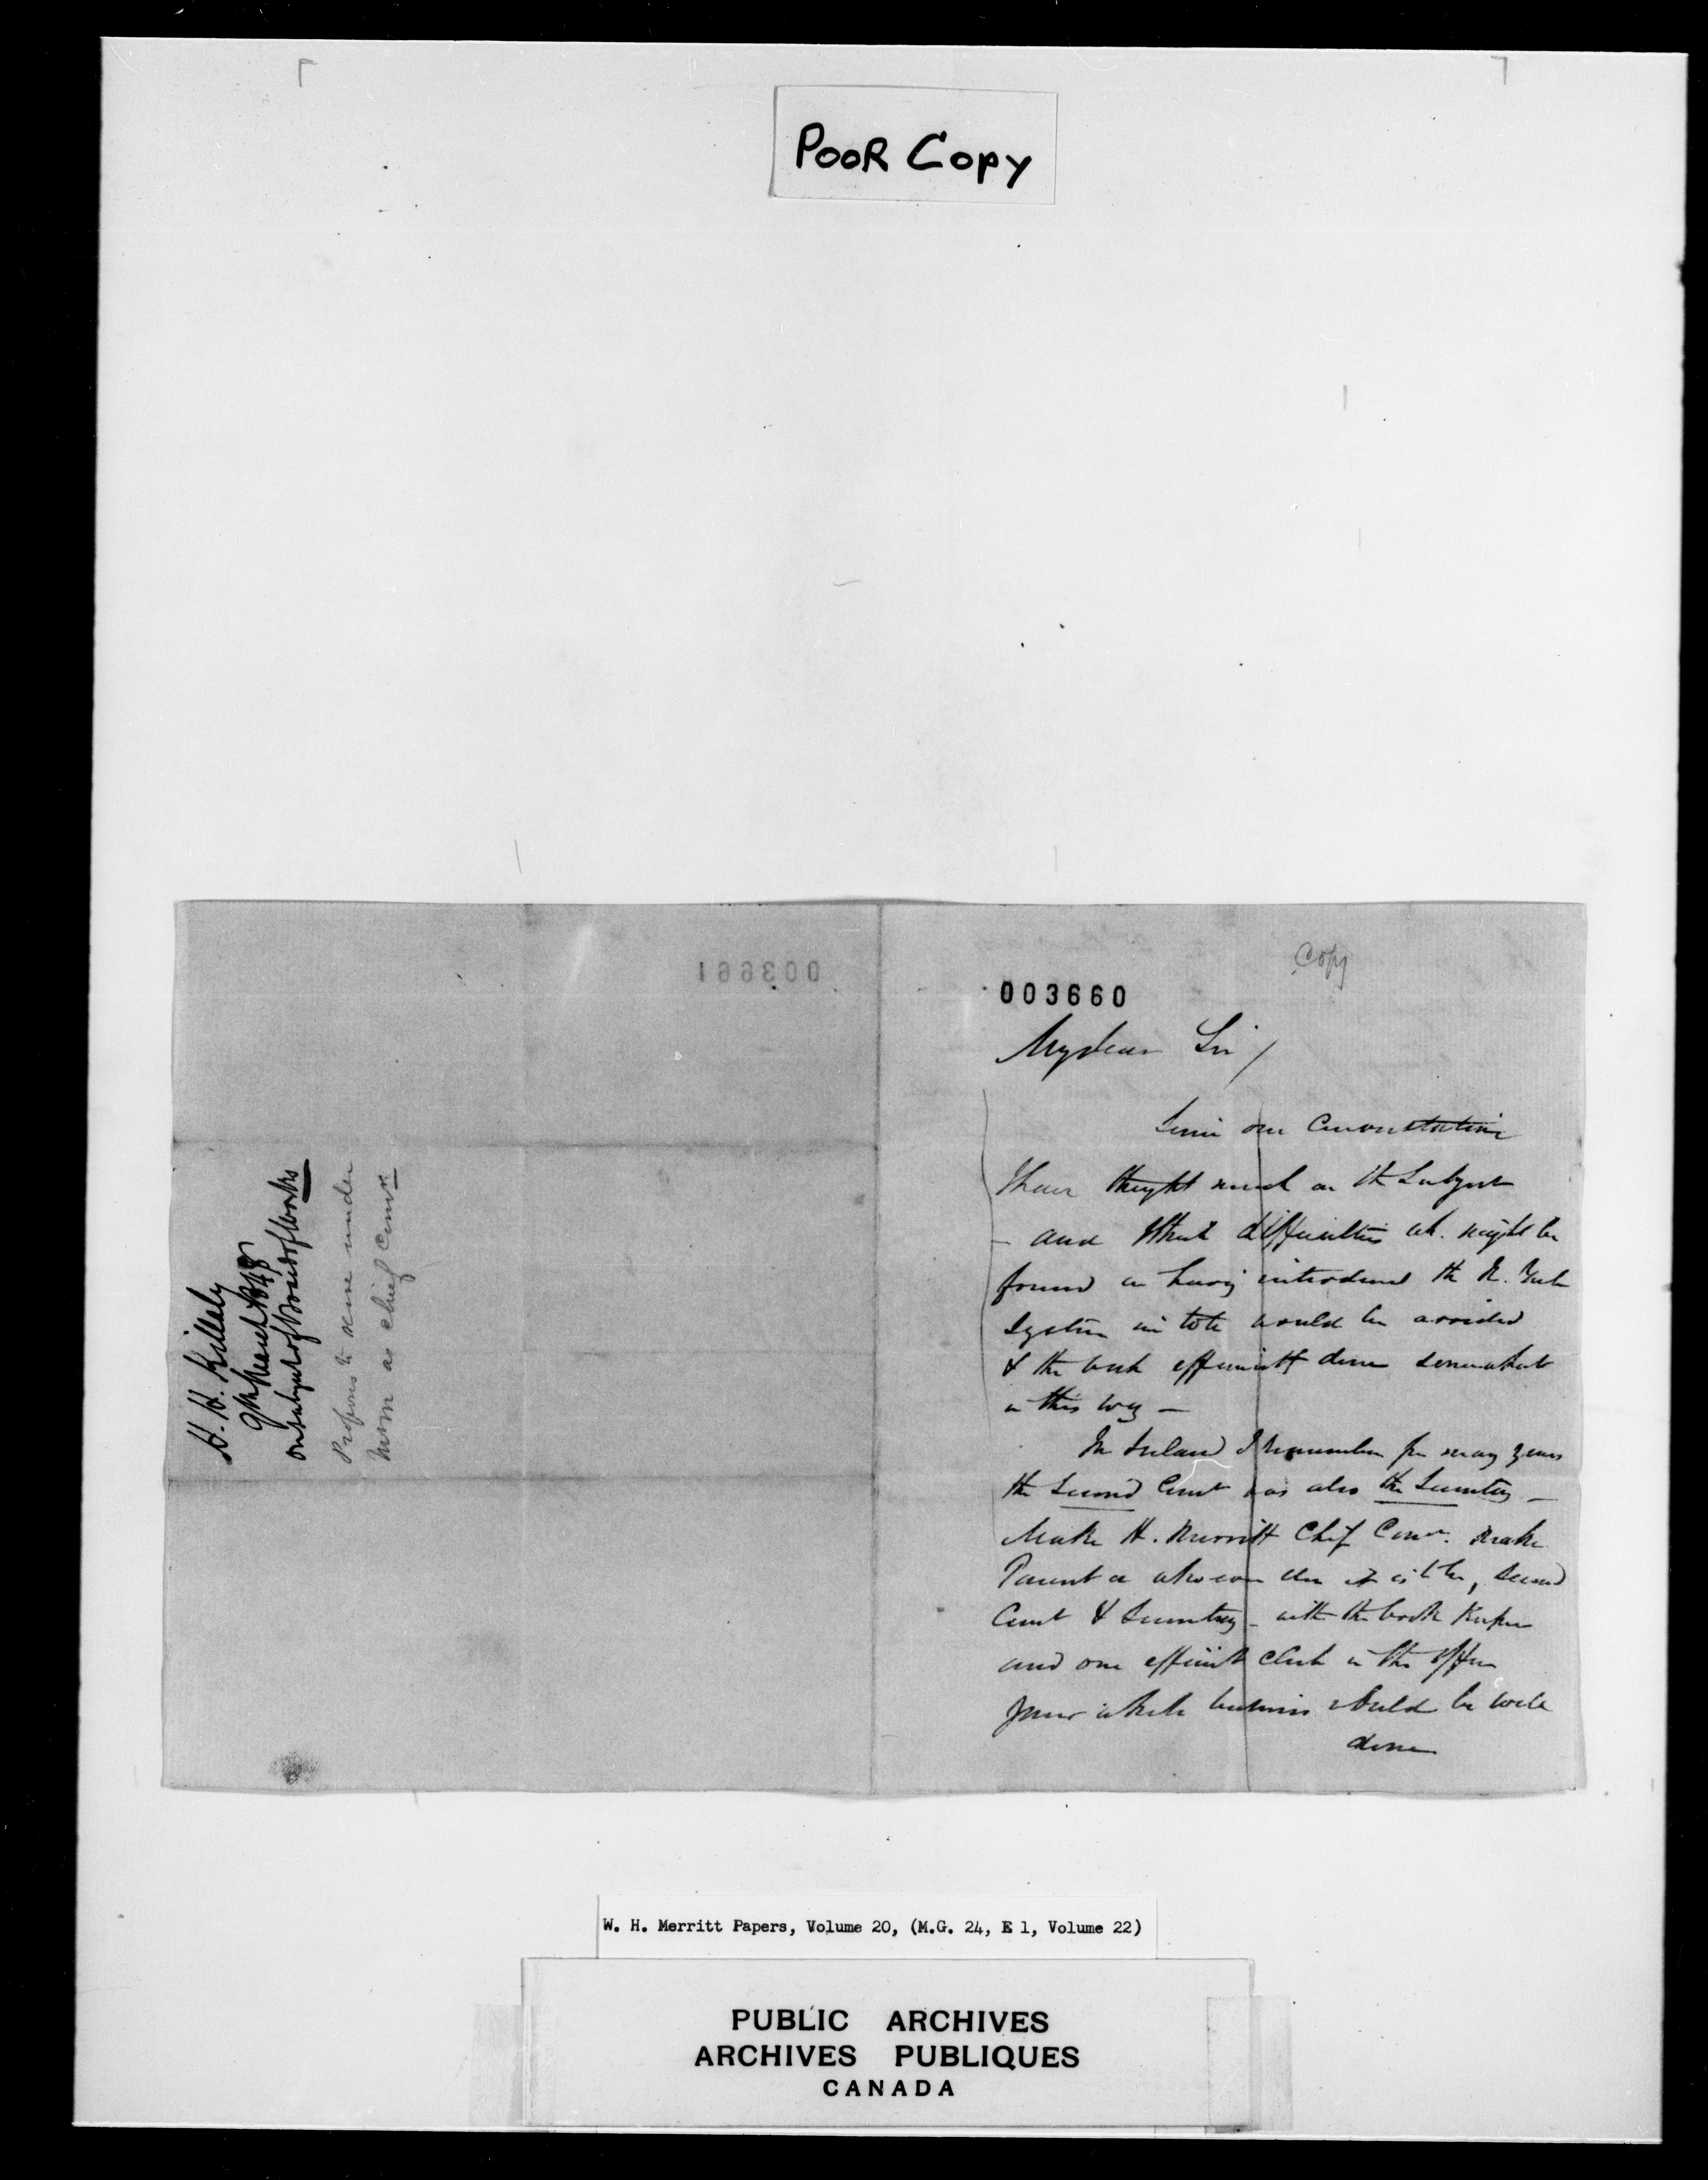 POOR COPY
Copy
003660
My dear Sir/
Since our Conversation
I have thought much on the Subject
- and I think difficulties wh. might be
found in having introduced the N. York
System in toto would be avoided
& the work efficiently done somewhat
in this way -
In Ireland I remember for many years
the Second Comr was also the Secretary -
Make H. Merritt Chief Comr. make
Parent or who ever else it is to be, Second
Comr & Secretary - with the book Keeper
and one efficient Clerk in the office
your whole business would be well
done
003661
H. H. Killaly
9th March 1848
on subject of Board of Works
Proposes to serve under
WHM as chief Comr
W. H. Merritt Papers, Volume 20, (M.G. 24, E 1, Volume 22)
PUBLIC ARCHIVES
ARCHIVES PUBLIQUES
CANADA